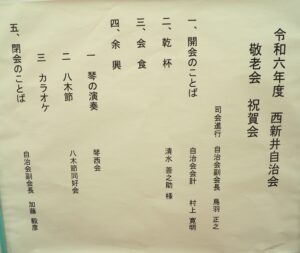 令和六年度 西新井自治会
敬老会 祝賀会
司会進行 自治会副会長 鳥羽 正之
一、開会のことば 自治会会計 村上 寛明
二、乾杯 清水 善之助 様
三、会食
四、余興
一 琴の演奏 琴西会
二 八木節 八木節同好会
三 カラオケ
五、閉会のことば 自治会副会長 加藤 毅彦